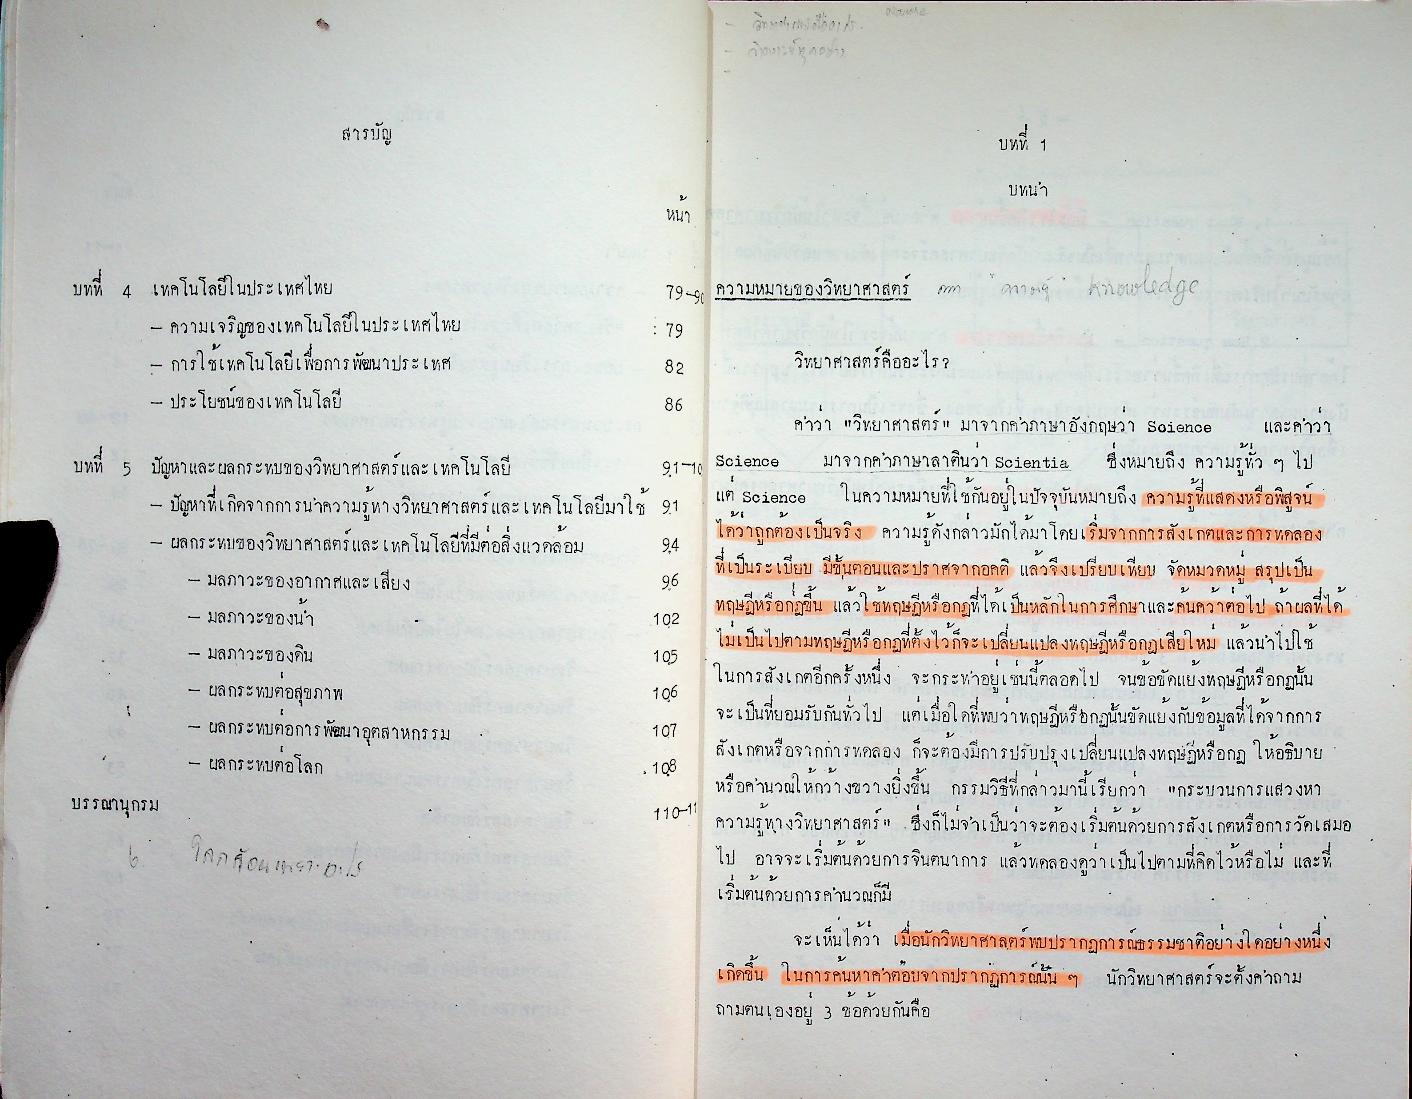 สารบัญ
หน้า
บทที่ 4 เทคโนโลยีในประเทศไทย 79-90
- ความเจริญของเทคโนโลยีในประเทศไทย 79
- การใช้เทคโนโลยีเพื่อการพัฒนาประเทศ 82
- ประโยชน์ของเทคโนโลยี 86
บทที่ 5 ปัญหาและผลกระทบของวิทยาศาสตร์และเทคโนโลยี 91-10
- ปัญหาที่เกิดจากการนำความรู้ทางวิทยาศาสตร์และเทคโนโลยีมาใช้ 91
- ผลกระทบของวิทยาศาสตร์และเทคโนโลยีที่มีต่อสิ่งแวดล้อม 94
- มลภาวะของอากาศและเสียง 96
- มลภาวะของน้ำ 102
- มลภาวะของดิน 105
- ผลกระทบต่อสุขภาพ 106
- ผลกระทบต่อการพัฒนาอุตสาหกรรม 107
- ผลกระทบต่อโลก 108
บรรณานุกรม 110-11
6.
บทที่ 1
บทนำ
ความหมายของวิทยาศาสตร์ knowledge
วิทยาศาสตร์คืออะไร?
คำว่า "วิทยาศาสตร์" มาจากคำภาษาอังกฤษว่า Science และคำว่า
Science มาจากคำภาษาลาตินว่า Scientia ซึ่งหมายถึง ความรู้ทั่ว ๆ ไป
แต่ Science ในความหมายที่ใช้กันอยู่ในปัจจุบันหมายถึง ความรู้ที่แสดงหรือพิสูจน์
ได้ว่าถูกต้องเป็นจริง ความรู้ดังกล่าวมักได้มาโดยเริ่มจากการสังเกตและการทดลอง
ที่เป็นระเบียบ มีขั้นตอนและปราศจากอคติ แล้วจึงเปรียบเทียบ จัดหมวดหมู่ สรุปเป็น
ทฤษฎีหรือกฎขึ้น แล้วใช้ทฤษฎีหรือกฎที่ได้เป็นหลักในการศึกษาและค้นคว้าต่อไป ถ้าผลที่ได้
ไม่เป็นไปตามทฤษฎีหรือกฎที่ตั้งไว้ก็จะเปลี่ยนแปลงทฤษฎีหรือกฎเสียใหม่ แล้วนำไปใช้
ในการสังเกตอีกครั้งหนึ่ง จะกระทำอยู่เช่นนี้ตลอดไป จนข้อขัดแย้งทฤษฎีหรือกฎนั้น
จะเป็นที่ยอมรับกันทั่วไป แต่เมื่อใดที่พบว่าทฤษฎีหรือกฎนั้นขัดแย้งกับข้อมูลที่ได้จากการ
สังเกตหรือจากการทดลอง ก็จะต้องมีการปรับปรุงเปลี่ยนแปลงทฤษฎีหรือกฎ ให้อธิบาย
หรือคำนวณให้กว้างขวางยิ่งขึ้น กรรมวิธีที่กล่าวมานี้เรียกว่า "กระบวนการแสวงหา
ความรู้ทางวิทยาศาสตร์" ซึ่งก็ไม่จำเป็นว่าจะต้องเริ่มต้นด้วยการสังเกตหรือการวัดเสมอ
ไป อาจจะเริ่มต้นด้วยการจินตนาการ แล้วทดลองดูว่าเป็นไปตามที่คิดไว้หรือไม่ และที่
เริ่มต้นด้วยการคำนวณก็มี
จะเห็นได้ว่า เมื่อนักวิทยาศาสตร์พบปรากฏการณ์ธรรมชาติอย่างใดอย่างหนึ่ง
เกิดขึ้น ในการค้นหาคำตอบจากปรากฏการณ์นั้น ๆ นักวิทยาศาสตร์จะตั้งคำถาม
ถามตนเองอยู่ 3 ข้อด้วยกันคือ